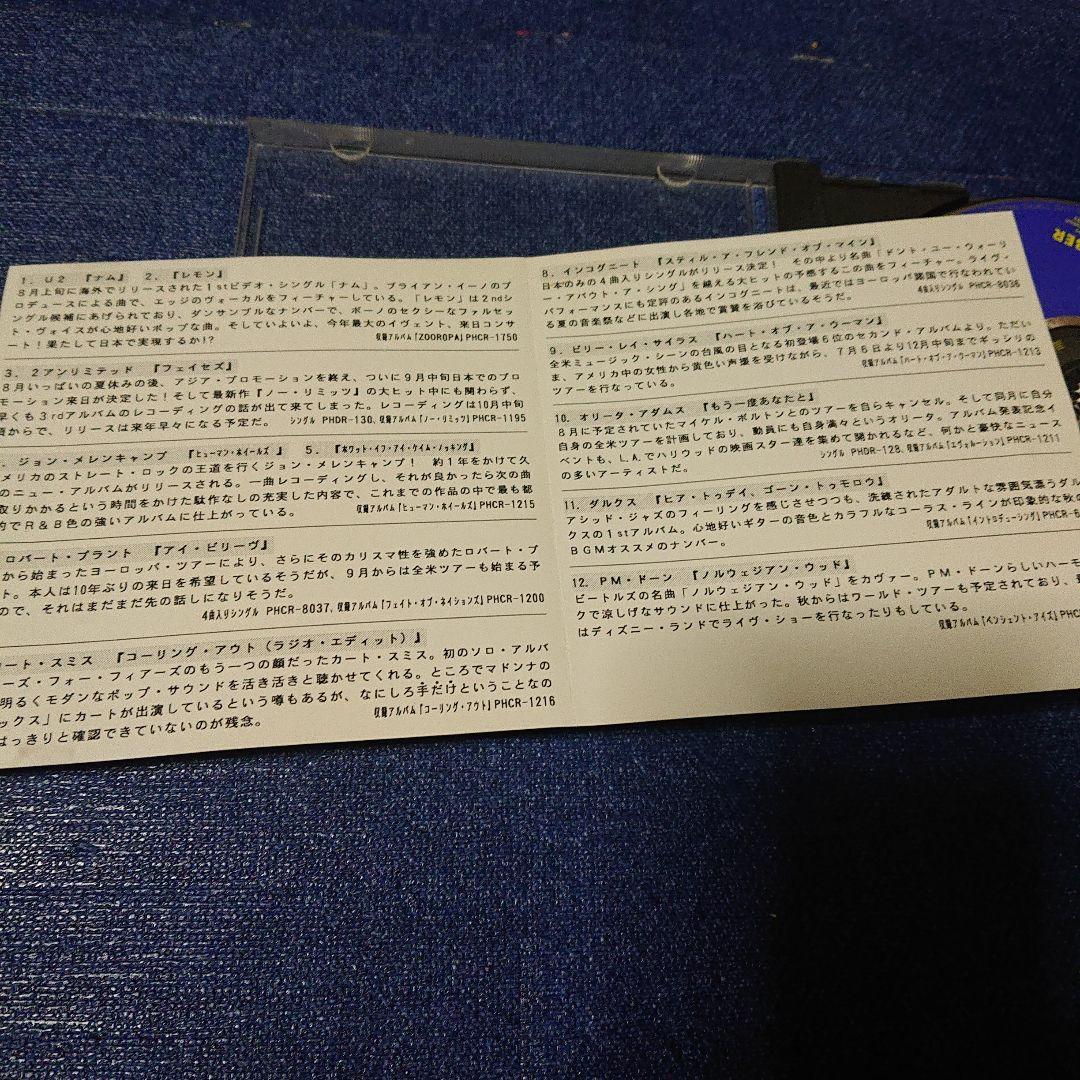 1. U2 『ナム』 2. 『レモン』
8月上旬に海外でリリースされた1stビデオ・シングル「ナム」。ブライアン・イーノのプ
ロデュースによる曲で、エッジのヴォーカルをフィーチャーしている。「レモン」は2ndシ
ングル候補にあげられており、ダンサンブルなナンバーで、ボーノのセクシーなファルセッ
ト・ヴォイスが心地好いポップな曲。そしていよいよ、今年最大のイヴェント、来日コンサ
ート！果たして日本で実現するか!? 収録アルバム「ZOOROPA」PHCR-1750
3. 2アンリミテッド 『フェイセズ』
8月いっぱいの夏休みの後、アジア・プロモーションを終え、ついに9月中旬日本でのプロ
モーション来日が決定した！そして最新作『ノー・リミッツ』の大ヒット中にも関わらず、
早くも3rdアルバムのレコーディングの話が出て来てしまった。レコーディングは10月中旬
頃からで、リリースは来年早々になる予定だ。 シングル PHDR-130、収録アルバム「ノー・リミッツ」PHCR-1195
. ジョン・メレンキャンプ 『ヒューマン・ホイールズ』 5. 『ホワット・イフ・アイ・ケイム・ノッキング』
メリカのストレート・ロックの王道を行くジョン・メレンキャンプ！ 約1年をかけて久
のニュー・アルバムがリリースされる。一曲レコーディングし、それが良かったら次の曲
取りかかるという時間をかけた駄作なしの充実した内容で、これまでの作品の中で最も都
的でR&B色の強いアルバムに仕上がっている。 収録アルバム「ヒューマン・ホイールズ」PHCR-1215
ロバート・プラント 『アイ・ビリーヴ』
から始まったヨーロッパ・ツアーにより、さらにそのカリスマ性を強めたロバート・プ
ト。本人は10年ぶりの来日を希望しているそうだが、9月からは全米ツアーも始まる予
ので、それはまだまだ先の話しになりそうだ。
4曲入りシングル PHCR-8037、収録アルバム「フェイト・オブ・ネイションズ」PHCR-1200
ート・スミス 『コーリング・アウト（ラジオ・エディット）』
ーズ・フォー・フィアーズのもう一つの顔だったカート・スミス。初のソロ・アルバ
明るくモダンなポップ・サウンドを活き活きと聴かせてくれる。ところでマドンナの
ックス」にカートが出演しているという噂もあるが、なにしろ手だけということなの
はっきりと確認できていないのが残念。 収録アルバム「コーリング・アウト」PHCR-1216
8. インコグニート 『スティル・ア・フレンド・オブ・マイン』
日本のみの4曲入りシングルがリリース決定！ その中より名曲「ドント・ユー・ウォーリ
ー・アバウト・ア・シング」を越える大ヒットの予感するこの曲をフィーチャー。ライヴ・
パフォーマンスにも定評のあるインコグニートは、最近ではヨーロッパ諸国で行なわれてい
る夏の音楽祭などに出演し各地で賞賛を浴びているそうだ。 4曲入りシングル PHCR-8036
9. ビリー・レイ・サイラス 『ハート・オブ・ア・ウーマン』
全米ミュージック・シーンの台風の目となる初登場6位のセカンド・アルバムより。ただい
ま、アメリカ中の女性から黄色い声援を受けながら、7月6日より12月中旬までギッシリの
ツアーを行なっている。 収録アルバム「ハート・オブ・ア・ウーマン」PHCR-1213
10. オリータ・アダムス 『もう一度あなたと』
8月に予定されていたマイケル・ボルトンとのツアーを自らキャンセル。そして同月に自分
自身の全米ツアーを計画しており、動員にも自身満々というオリータ。アルバム発表記念イ
ベントも、L.A.でハリウッドの映画スター達を集めて開かれるなど、何かと豪快なニュース
の多いアーティストだ。 シングル PHDR-128、収録アルバム「エヴォルーション」PHCR-1211
11. ダルクス 『ヒア・トゥデイ、ゴーン・トゥモロウ』
アシッド・ジャズのフィーリングを感じさせつつも、洗練されたアダルトな雰囲気漂うダル
クスの1stアルバム。心地好いギターの音色とカラフルなコーラス・ラインが印象的な秋の
BGMオススメのナンバー。 収録アルバム「イントロデューシング」PHCR-6
12. PM・ドーン 『ノルウェジアン・ウッド』
ビートルズの名曲「ノルウェジアン・ウッド」をカヴァー。PM・ドーンらしいハーモ
クで涼しげなサウンドに仕上がった。秋からはワールド・ツアーも予定されており、
はディズニー・ランドでライヴ・ショーを行なったりもしている。
収録アルバム「ペンシェント・アイズ」PHC